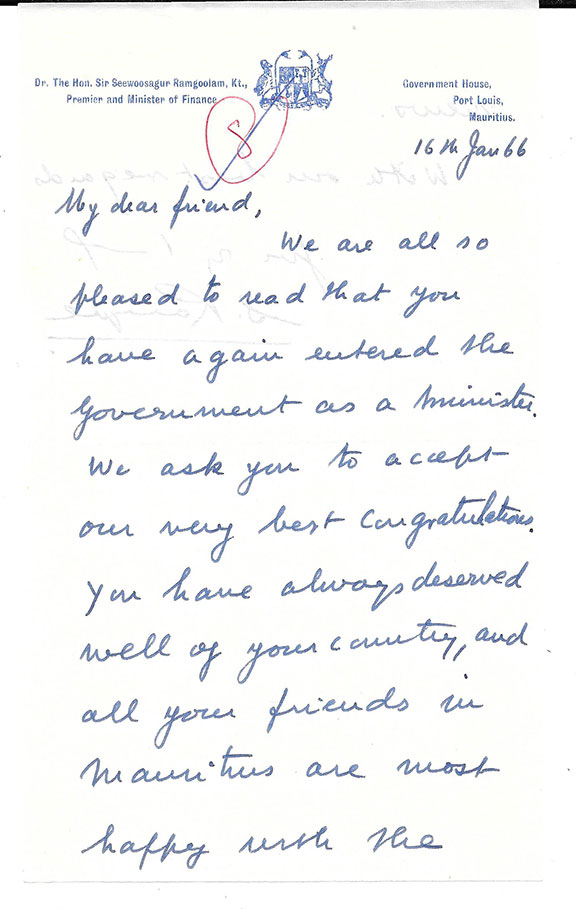 Dr. The Hon. Sir Seewoosagur Ramgoolam, Kt.,
Premier and Minister of Finance
Government House,
Port Louis,
Mauritius.
16th Jan 66
8
My dear friend,
We are all so
pleased to read that you
have again entered the
Government as a Minister.
We ask you to accept
our very best Congratulations.
You have always deserved
well of your country, and
all your friends in
Mauritius are most
happy with the